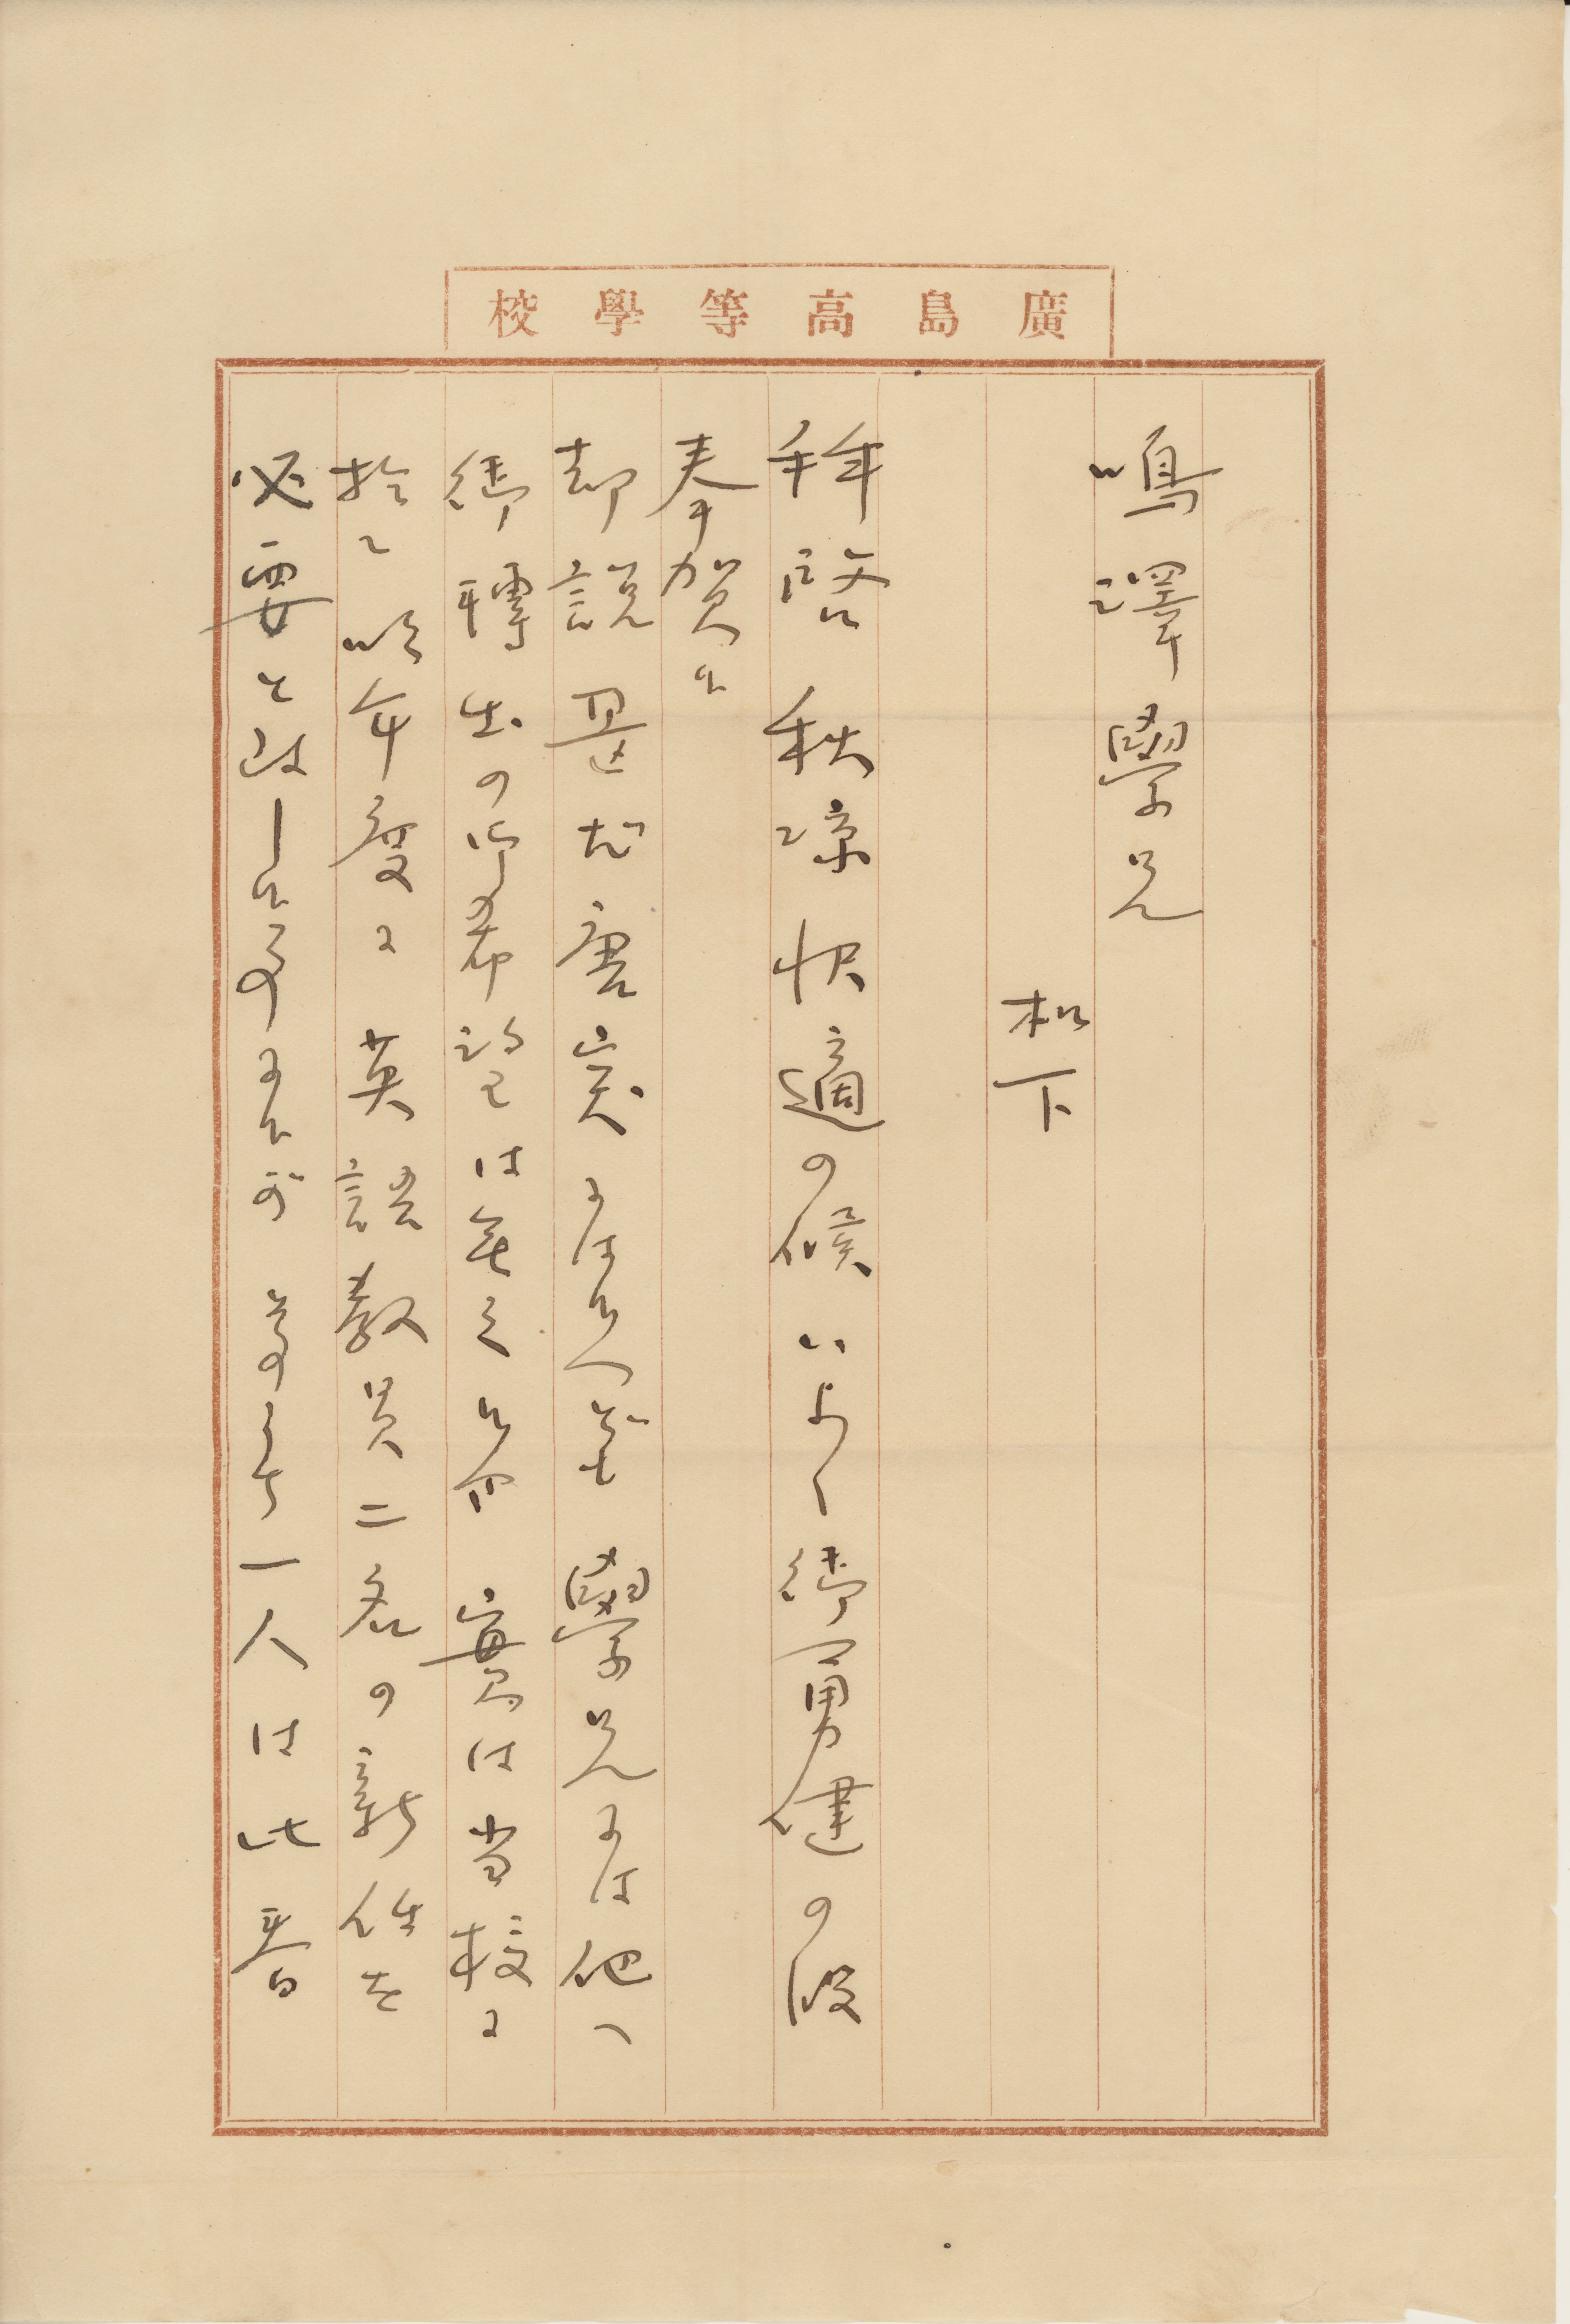 廣島高等學校
鳴澤學兄
松下
拜啓秋凉快適の候いよ〱御勇健の段
奉賀候
却説甚だ唐突には候へども學兄には他へ
御轉出の御希望は無之候哉 實は当校に
於て 昨年度に英語教員二名の新任を
必要と致し候 一人は此春